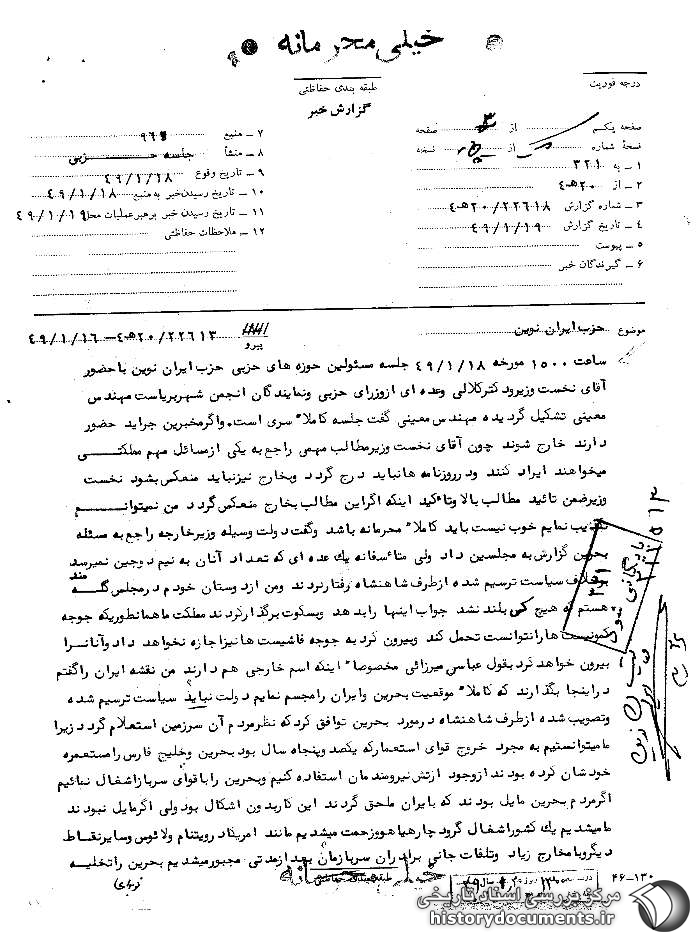 خیلی محرمانه
درجه فوریت
طبقه بندی حفاظتی
گزارش خبر
صفحه یکم از ۳ صفحه
نسخهٔ شماره از نسخه
۱ – به ۳۲۱
۲ – از ۲۰ﻫ۴
۳ – شماره گزارش ۲۰/۲۲۶۱۸ﻫ۴
۴ – تاریخ گزارش ۴۹/۱/۱۹
۵ – پیوست
۶ – گیرندگان خبر
۷ – منبع
۸ – منشأ جلسه حزبی
۹ – تاریخ وقوع ۴۹/۱/۱۸
۱۰ – تاریخ رسیدن خبر به منبع ۴۹/۱/۱۸
۱۱ – تاریخ رسیدن خبر برهبر عملیات محل ۴۹/۱/۱۹
۱۲ – ملاحظات حفاظتی
موضوع حزب ایران نوین پیرو ۲۰/۲۲۶۱۳ﻫ۴ – ۴۹/۱/۱۶
ساعت ۱۵۰۰ مورخه ۴۹/۱/۱۸ جلسه مسئولین حوزه های حزبی حزب ایران نوین با حضور
آقای نخست وزیر و دکتر کلالی و عده ای از وزرای حزبی و نمایندگان انجمن شهر بریاست مهندس
معینی تشکیل گردیده مهندس معینی گفت جلسه کاملا" سری است، و اگر مخبرین جراید حضور
دارند خارج شوند چون آقای نخست وزیر مطالب مهمی راجع به یکی از مسائل مهم مملکتی
میخواهند ایراد کنند و در روزنامه ها نباید درج گردد و بخارج نیز نباید منعکس بشود نخست
وزیر ضمن تائید مطالب بالا و تأکید اینکه اگر این مطالب بخارج منعکس گردد من نمیتوانم
تکذیب نمایم خوب نیست باید کاملا" محرمانه باشد وگفت دولت وسیله وزیر خارجه راجع به مسئله
بحرین گزارش به مجلسین داد ولی متأسفانه یك عده ای که تعداد آنان به نیم دوجین نمیرسد
برخلاف سیاست ترسیم شده از طرف شاهنشاه رفتار نردند ومن از دوستان خودم در مجلس گله مند
هستم که هیچ کس بلند نشد جواب اینها را بدهد وبسکوت برگذار کردند مملکت ما همانطوریکه جوجه
کمونیست ها را نتوانست تحمل کند وبیرون کرد به جوجه فاشیست ها نیز اجازه نخواهد داد وآنانرا
بیرون خواهد کرد بقول عباسی میرزائی مخصوصا" اینکه اسم خارجی هم دارند من نقشه ایران را گفتم
در اینجا بگذارند که کاملا" موقعیت بحرین وایران را مجسم نمایم دولت نباید سیاست ترسیم شده
وتصویب شده از طرف شاهنشاه در مورد بحرین توافق کرد که نظر مردم آن سرزمین استعلام گردد زیرا
ما میتوانستیم به مجرد خروج قوای استعمار که یکصد و پنجاه سال بود بحرین وخلیج فارس را مستعمره
خودشان کرده بودند از وجود ارتش نیرومندمان استفاده کنیم وبحرین را باقوای سرباز اشغال نمائیم
اگر مردم بحرین مایل بودند که بایران ملحق گردند این کار بدون اشکال بود ولی اگر مایل نبودند
ما میشدیم یك کشور اشغال گر و دچار هیاهو و زحمت میشدیم مانند امریکا در ویتنام ولائوس وسایر نقاط
دیگر وبا مخارج زیاد وتلفات جانی برادران سربازمان بعد از مدتی مجبور میشدیم بحرین را تخلیه
طبقه بندی حفاظتی
۴۶-۱۳۰
بایگانی شود
مرکز بررسی اسناد تاریخی
historydocuments.ir